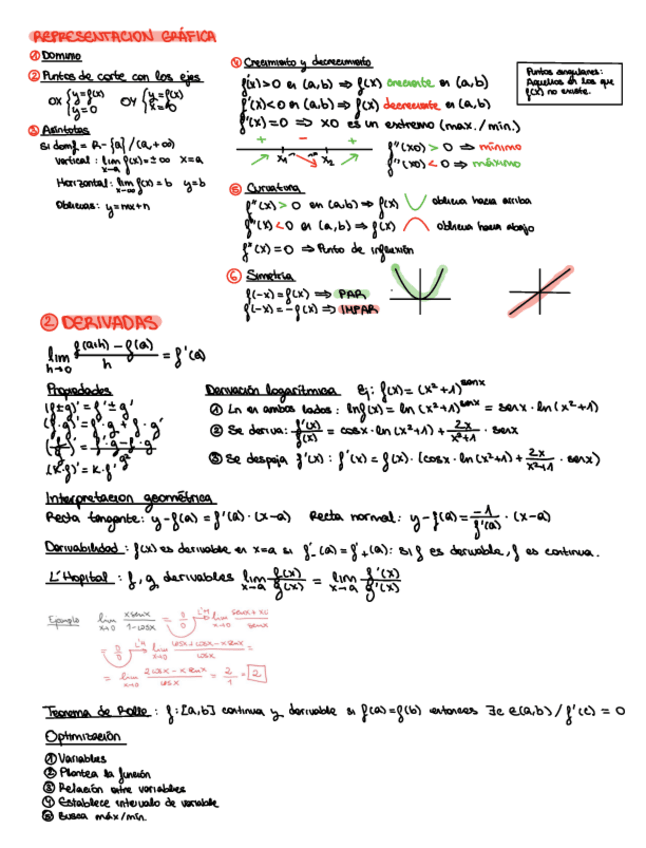 REPRESENTACIÓN GRÁFICA
① Dominio
② Puntos de corte con los ejes
OX { y=f(x) y=0    OY { y=f(x) x=0
③ Asíntotas
si domf = R-{a} / (a,+∞)
Vertical: lim x→a f(x)=±∞  x=a
Horizontal: lim x→∞ f(x)=b  y=b
Oblicuas: y=mx+n
④ Crecimiento y decrecimiento
f'(x)>0 en (a,b) ⇒ f(x) creciente en (a,b)
f'(x)<0 en (a,b) ⇒ f(x) decreciente en (a,b)
f'(x)=0 ⇒ x0 es un extremo (max./min.)
+ − +
x₁ x₂
f''(x0) > 0 ⇒ mínimo
f''(x0) < 0 ⇒ máximo
Puntos angulares:
Aquellos en los que
f(x) no existe.
⑤ Curvatura
f''(x) > 0 en (a,b) ⇒ f(x) oblicua hacia arriba
f''(x) < 0 en (a,b) ⇒ f(x) oblicua hacia abajo
f''(x)=0 ⇒ Punto de inflexión
⑥ Simetría
f(-x)=f(x) ⇒ PAR
f(-x)=-f(x) ⇒ IMPAR
② DERIVADAS
lim h→0 (f(a+h) − f(a))/h = f'(a)
Propiedades
(f±g)' = f' ± g'
(f·g)' = f'·g + f·g'
(f/g)' = (f'·g − f·g')/g²
(K·f)' = K·f'
Derivación logarítmica  Ej: f(x) = (x²+1)^senx
① Ln en ambos lados: lnf(x) = ln (x²+1)^senx = senx·ln(x²+1)
② Se deriva: f'(x)/f(x) = cosx·ln(x²+1) + 2x/(x²+1) · senx
③ Se despeja f'(x): f'(x) = f(x)·(cosx·ln(x²+1) + 2x/(x²+1) · senx)
Interpretación geométrica
Recta tangente: y−f(a) = f'(a)·(x−a)  Recta normal: y−f(a) = −1/f'(a) · (x−a)
Derivabilidad: f(x) es derivable en x=a si f'₋(a) = f'₊(a): si f es derivable, f es continua.
L'Hopital: f, g derivables lim x→a f(x)/g(x) = lim x→a f'(x)/g'(x)
Ejemplo  lim x→0 xsenx/(1−cosx) = 0/0 L'H lim x→0
= 0/0 L'H lim x→0 (cosx+cosx−xsenx)/cosx =
= lim x→0 (2cosx − xsenx)/cosx = 2/1 = 2
Teorema de Rolle: f:[a,b] continua y derivable si f(a)=f(b) entonces ∃c∈(a,b) / f'(c) = 0
Optimización
① Variables
② Plantea la función
③ Relación entre variables
④ Establece intervalo de variable
⑤ Busca máx/mín.